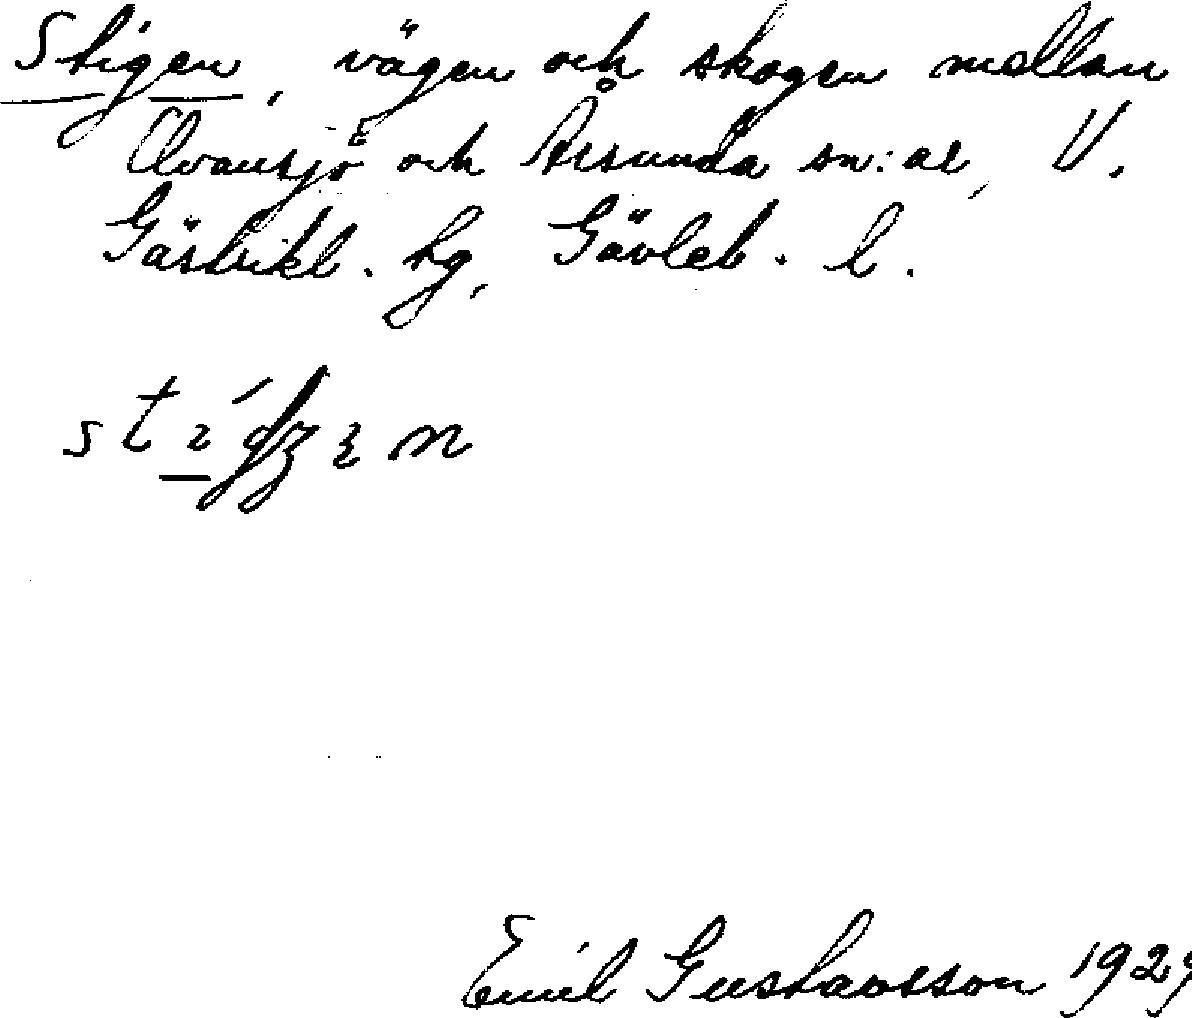 Stigen, vägen och skogen mellan
Ovansjö och Årsunda sn:ar, V.
Gästrikl. tg, Gävleb. l.
Emil Gustavsson